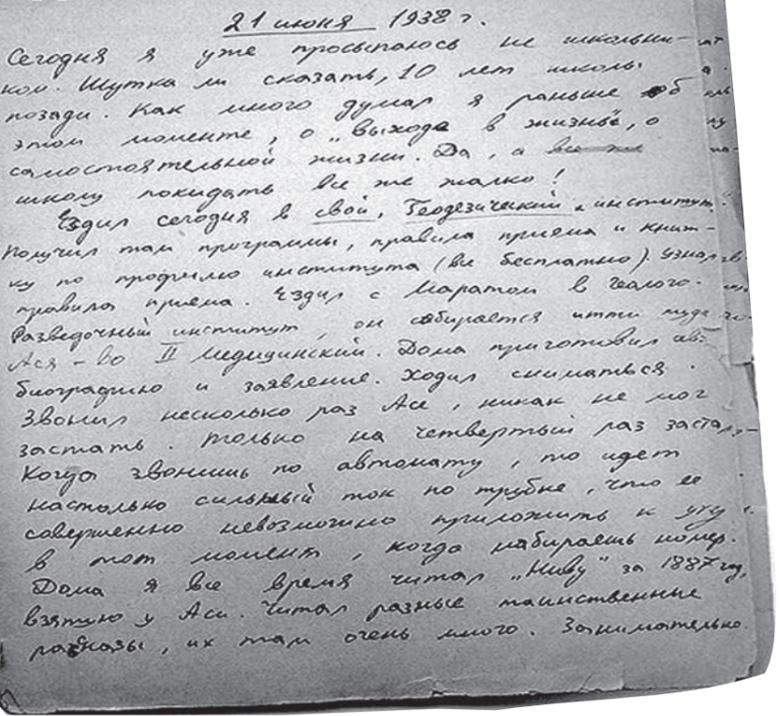 21 июня 1938 г.
Сегодня я уже просыпаюсь не школьни-
ком. Шутка ли сказать, 10 лет школы
позади. Как много думал я раньше об
этом моменте, о „выходе в жизнь", о
самостоятельной жизни. Да, а все же
школу покидать все же жалко!
Ездил сегодня в свой, Геодезический институт.
Получил там программы, правила приема и книж-
ку по профилю института (все бесплатно). Узнал
правила приема. Ездил с Маратом в Геолого-
Разведочный институт, он собирается итти туда
Ася – во II Медицинский. Дома приготовил авто-
биографию и заявление. Ходил сниматься.
Звонил несколько раз Асе, никак не мог
застать. Только на четвертый раз застал.
Когда звонишь по автомату, то идет
настолько сильный ток по трубке, что ее
совершенно невозможно приложить к уху
в тот момент, когда набираешь номер.
Дома я все время читал „Ниву" за 1887 год,
взятую у Аси. Читал разные таинственные
рассказы, их там очень много. Занимательно